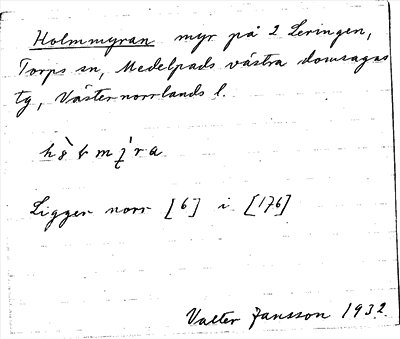 Holmmyran myr på 2 Leringen,
Torps sn, Medelpads västra domsagas
tg, Västernorrlands l.
Ligger norr [6] i [176]
Valter Jansson 1932.